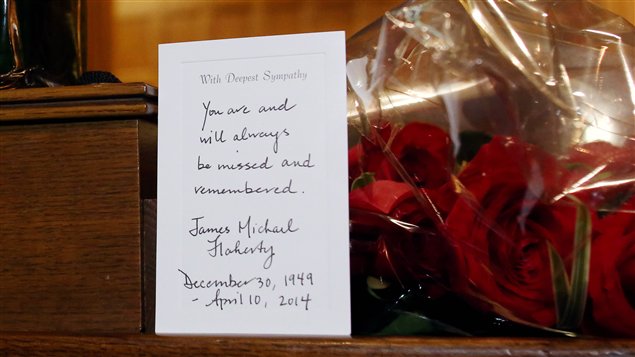 With Deepest Sympathy
You are and
will always
be missed and
remembered.
James Michael
Flaherty
December 30, 1949
- April 10, 2014